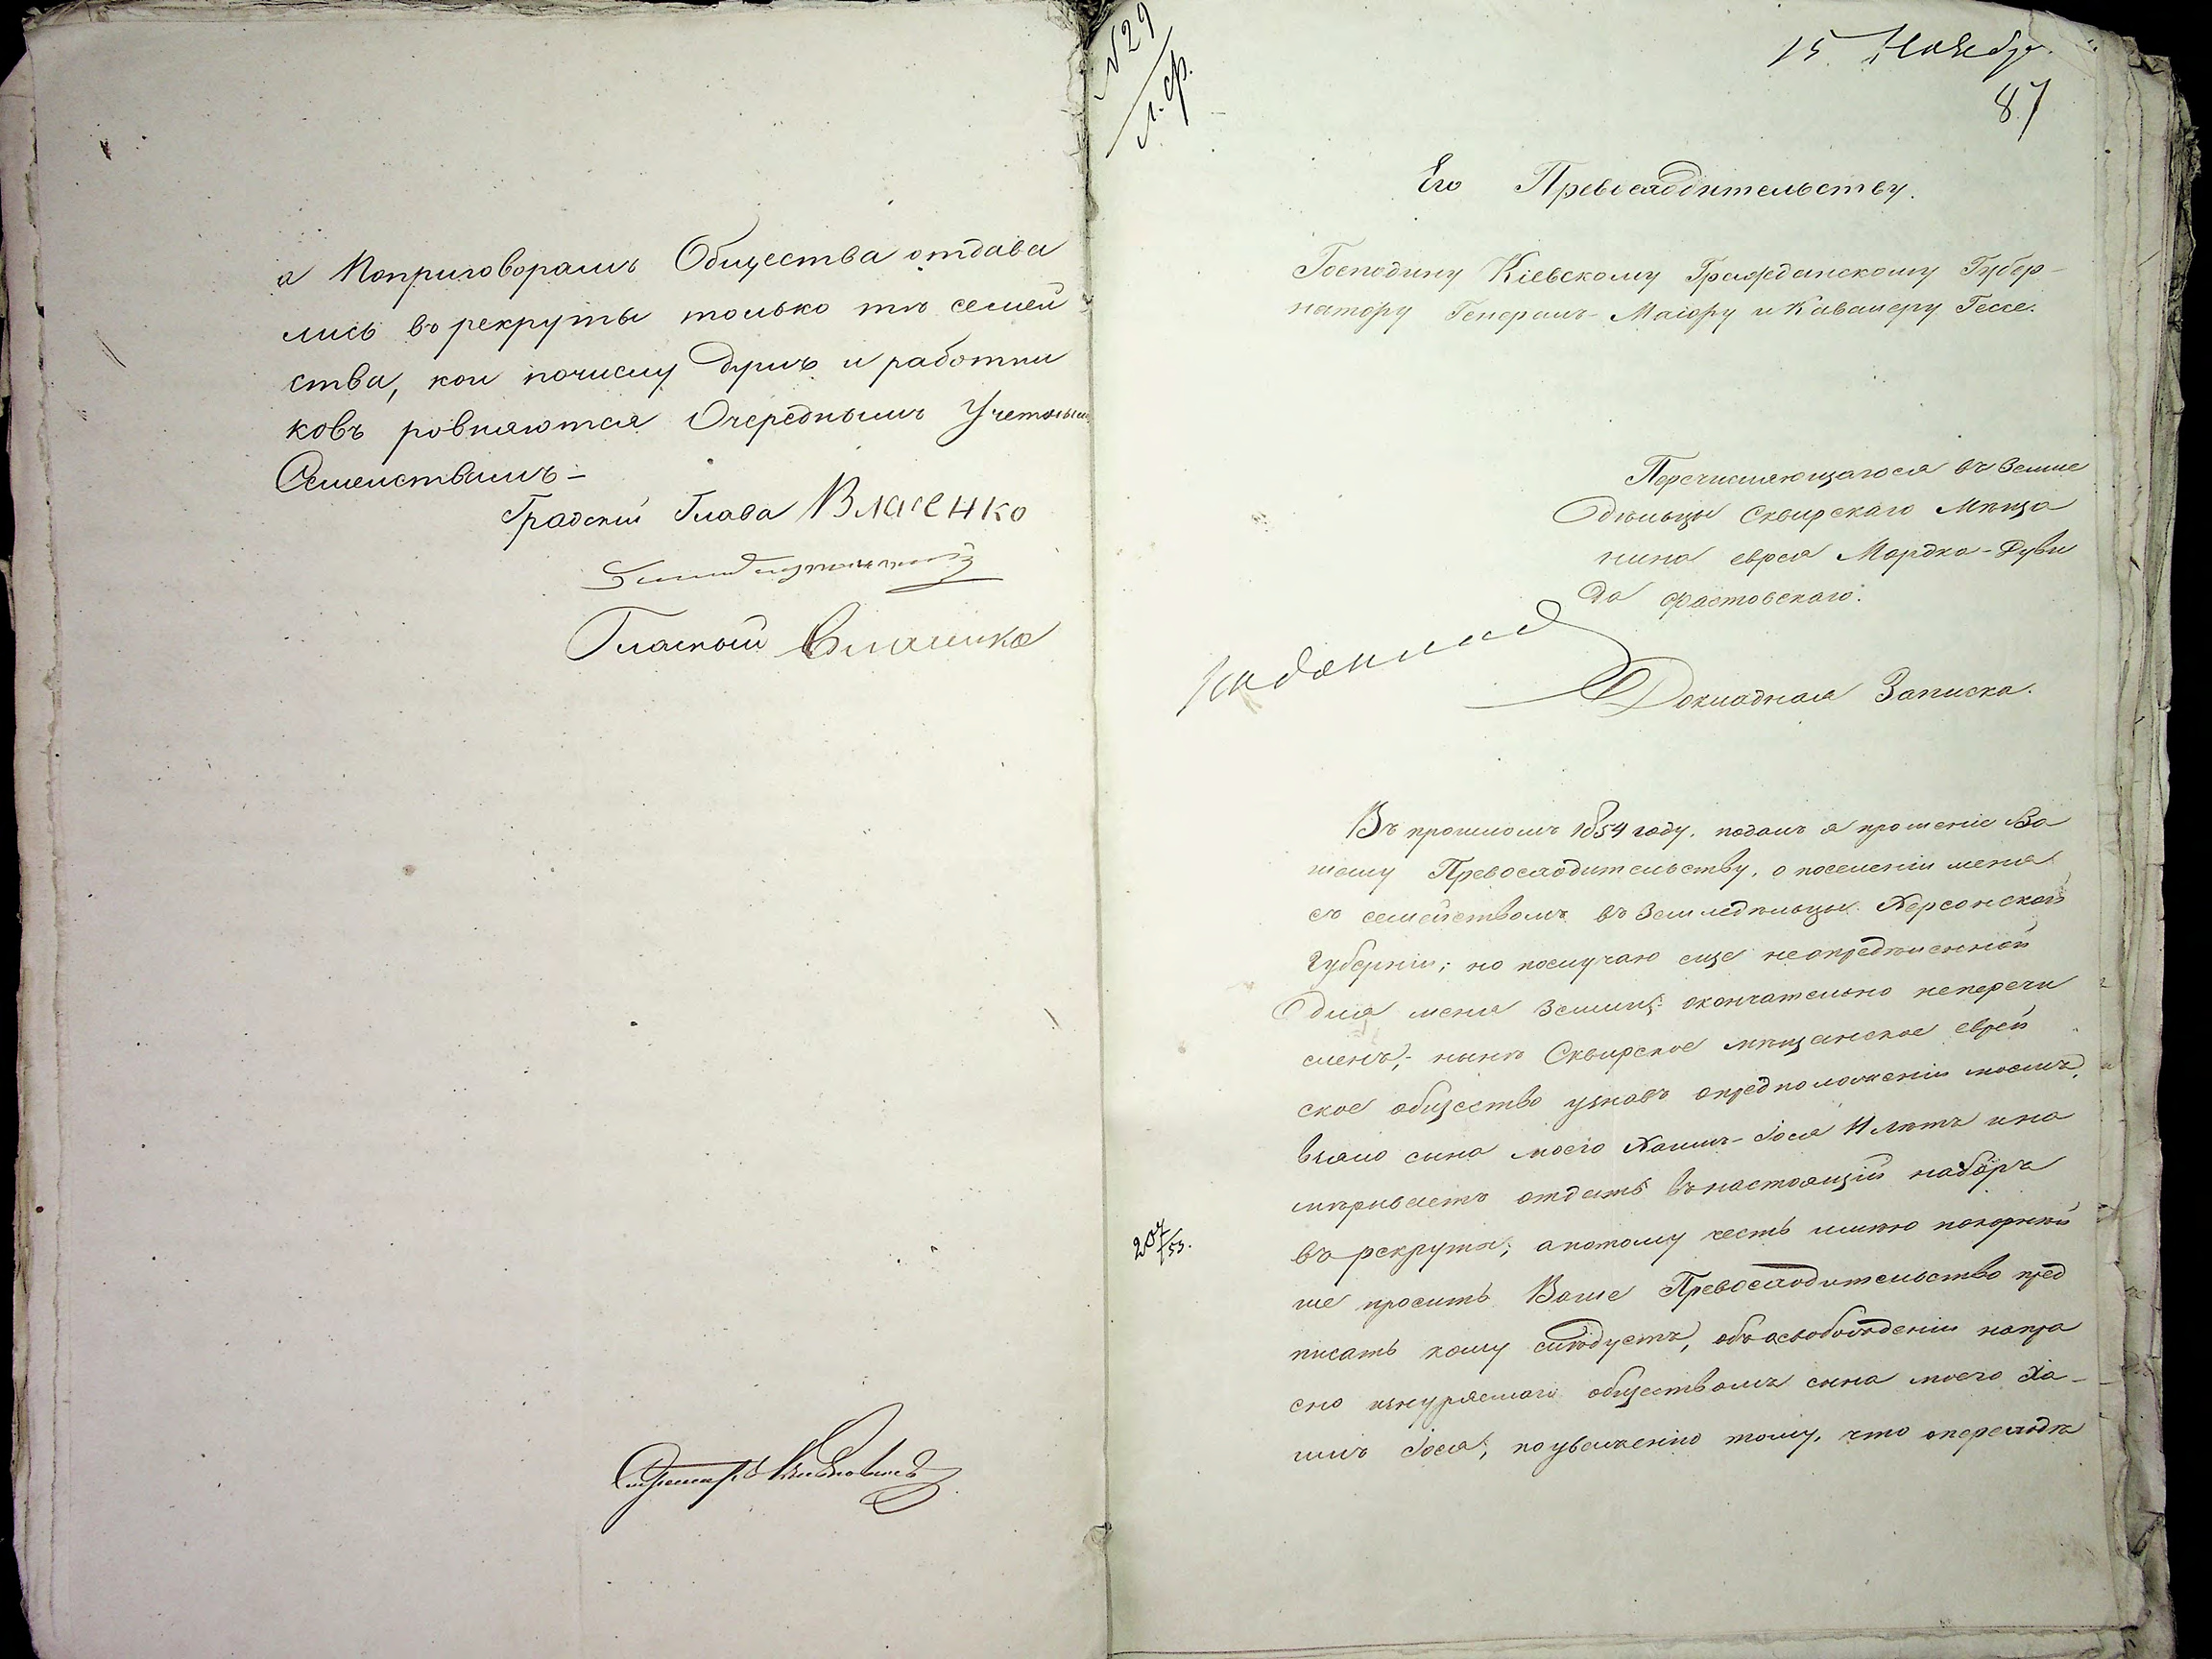 а Поприговорамъ Общества отдава
лись въ рекруты только тѣ семей
ства, кои почислу Душъ и работни
ковъ ровняются Очереднымъ Учетнымъ
Семействамъ-
Градскій Глава Власенко
Гласный Власенко
Секретарь
№ 29
15 Ноября
87
Его Превосходительству.
Господину Кіевскому Гражданскому Губер-
натору Генералъ-Маіору и Кавалеру Гессе.
Перечисляющагося въЗемле
дѣльцы Сквирскаго Мѣща
нина еврея Мордка-Дуви
да Фастовскаго.
Докладная Записка.
Въ прошломъ 1854 году. подалъ я прошеніе Ва
шему Превосходительству, о поселеніи меня
съ семействомъ въ Земледѣльцы Херсонской
Губерніи; но послучаю еще неопредѣленной
для меня Земли, окончательно неперечи
сленъ; нынѣ Сквирское мѣщанское еврей
ское общество узнавъ опредположеніи моемъ,
взяло сына моего Хаимъ-Іося 11 лѣтъ ина
мѣриваетъ отдать внастоящій наборъ
въ рекруты; апотому честь имѣю покорнѣй
ше просить Ваше Превосходительство пред
писать кому слѣдуетъ, объ освобожденіи напра
сно изнуряемаго обществомъ сына моего Ха-
имъ Іося, поуваженію тому, что опереходѣ
207/53.